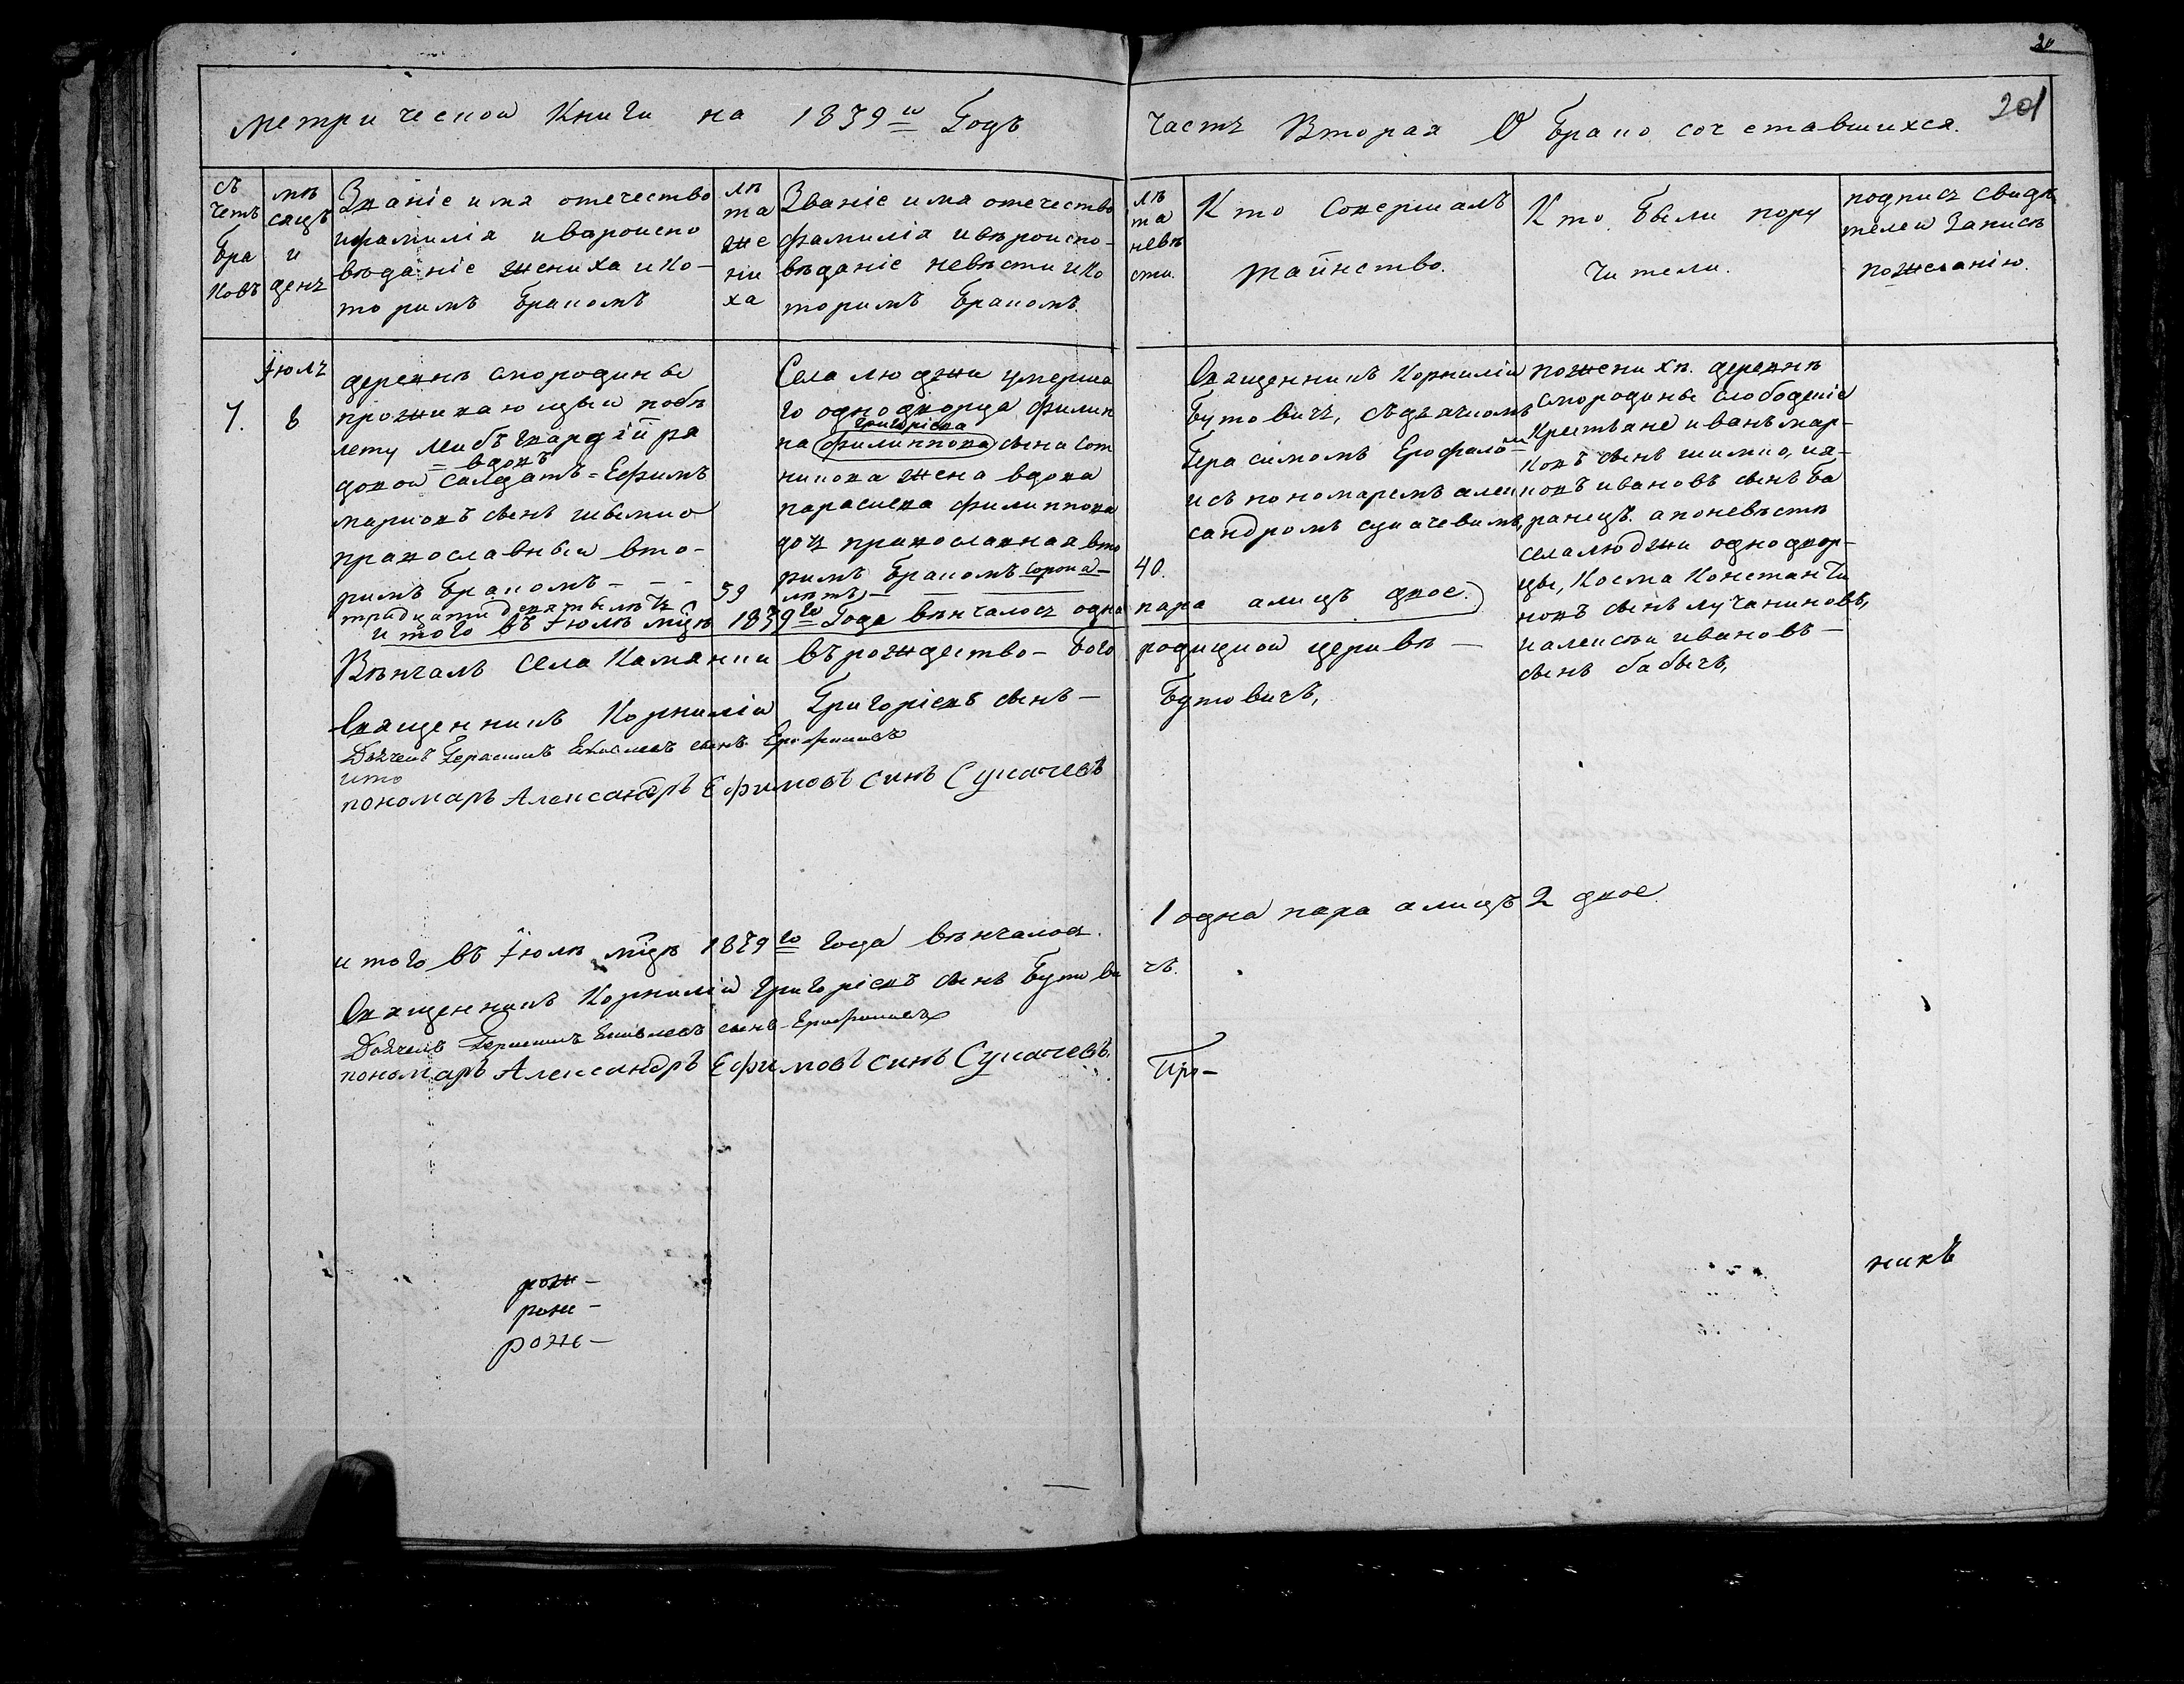 20
201
метрической Книги на 1839го Годъ
часть Вторая О Брако сочетавшихся.
съ
четъ
Бра
ковъ
мѣ
сяцъ
и
день
Званіе имя отечество
ифамилія ивѣроиспо
вѣданіе жениха ико-
торимъ Бракомъ
лѣ
та
же
ни
ха
Званіе имя отечество
фамилія ивѣроиспо-
вѣданіе невѣсти ико
торимъ Бракомъ
лѣ
та
невѣ
сти.
Кто Совершалъ
таинство.
Кто Были пору
чители.
подпись свидѣ
телей Запись
пожеланію.
7.
Іюль
8
деревнѣ смородины
проживающый побѣ
лету Лейбъ гвардіи ря
довой салдатъ = Ефимъ
= вдовъ
марковъ сынъ
православный вто-
римъ Бракомъ - - -
тридцати девятьлѣтъ
39
Села люджи умерша
го однодворца филип
па филиппова сына Сот
Григоріева
никова жена вдова
параскева филиппова
дочь православная вто
римъ Бракомъ сорока-
лѣтъ
40.
Священникъ Корнилій
Бутовичъ, съдячкомъ
Герасимомъ
исъ пономаремъ алек
сандромъ сукачевимъ,
поженихѣ деревнѣ
смородины слободскіе
Крестьяне иванъ мар-
ковъ сынъ шимко, ия-
ковъ ивановъ сынъ Ба
ранецъ. апоневѣстѣ
села люджи однодвор-
цы, Косма Константи
новъ сынъ лучаниновъ,
иалексѣй ивановъ -
сынъ бабичъ,
итого въ Іюлѣ мцѣ 1839го Года вѣнчалось одна пара алицъ двое.
Вѣнчалъ села Камянки въ рождество - Бого родицкой церквѣ -
Священникъ Корнилій Григоріевъ сынъ - Бутовичъ,
Дьячекъ Герасимъ сынъ
пономаръ Александръ Ефимовъ синъ Сукачевъ
1 одна пара алицъ 2 двое.
итого въ Іюлѣ мцѣ 1839го года вѣнчалось.
Священникъ Корнилій Григоріевъ сынъ Бутови чъ.
Дьячекъ Герасимъ сынъ
пономаръ Александръ Ефимовъ синъ Сукачевъ.
При-
рож-
рож-
рож-
никъ